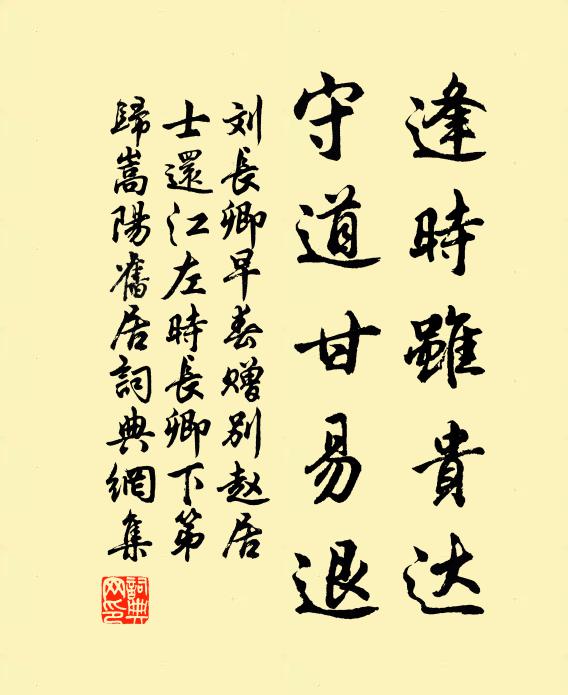 逢時雖貴达
守道甘易退
刘長卿早春赠别赵居
士還江左時長卿下第
歸嵩陽舊居詞典網集
詞典网印